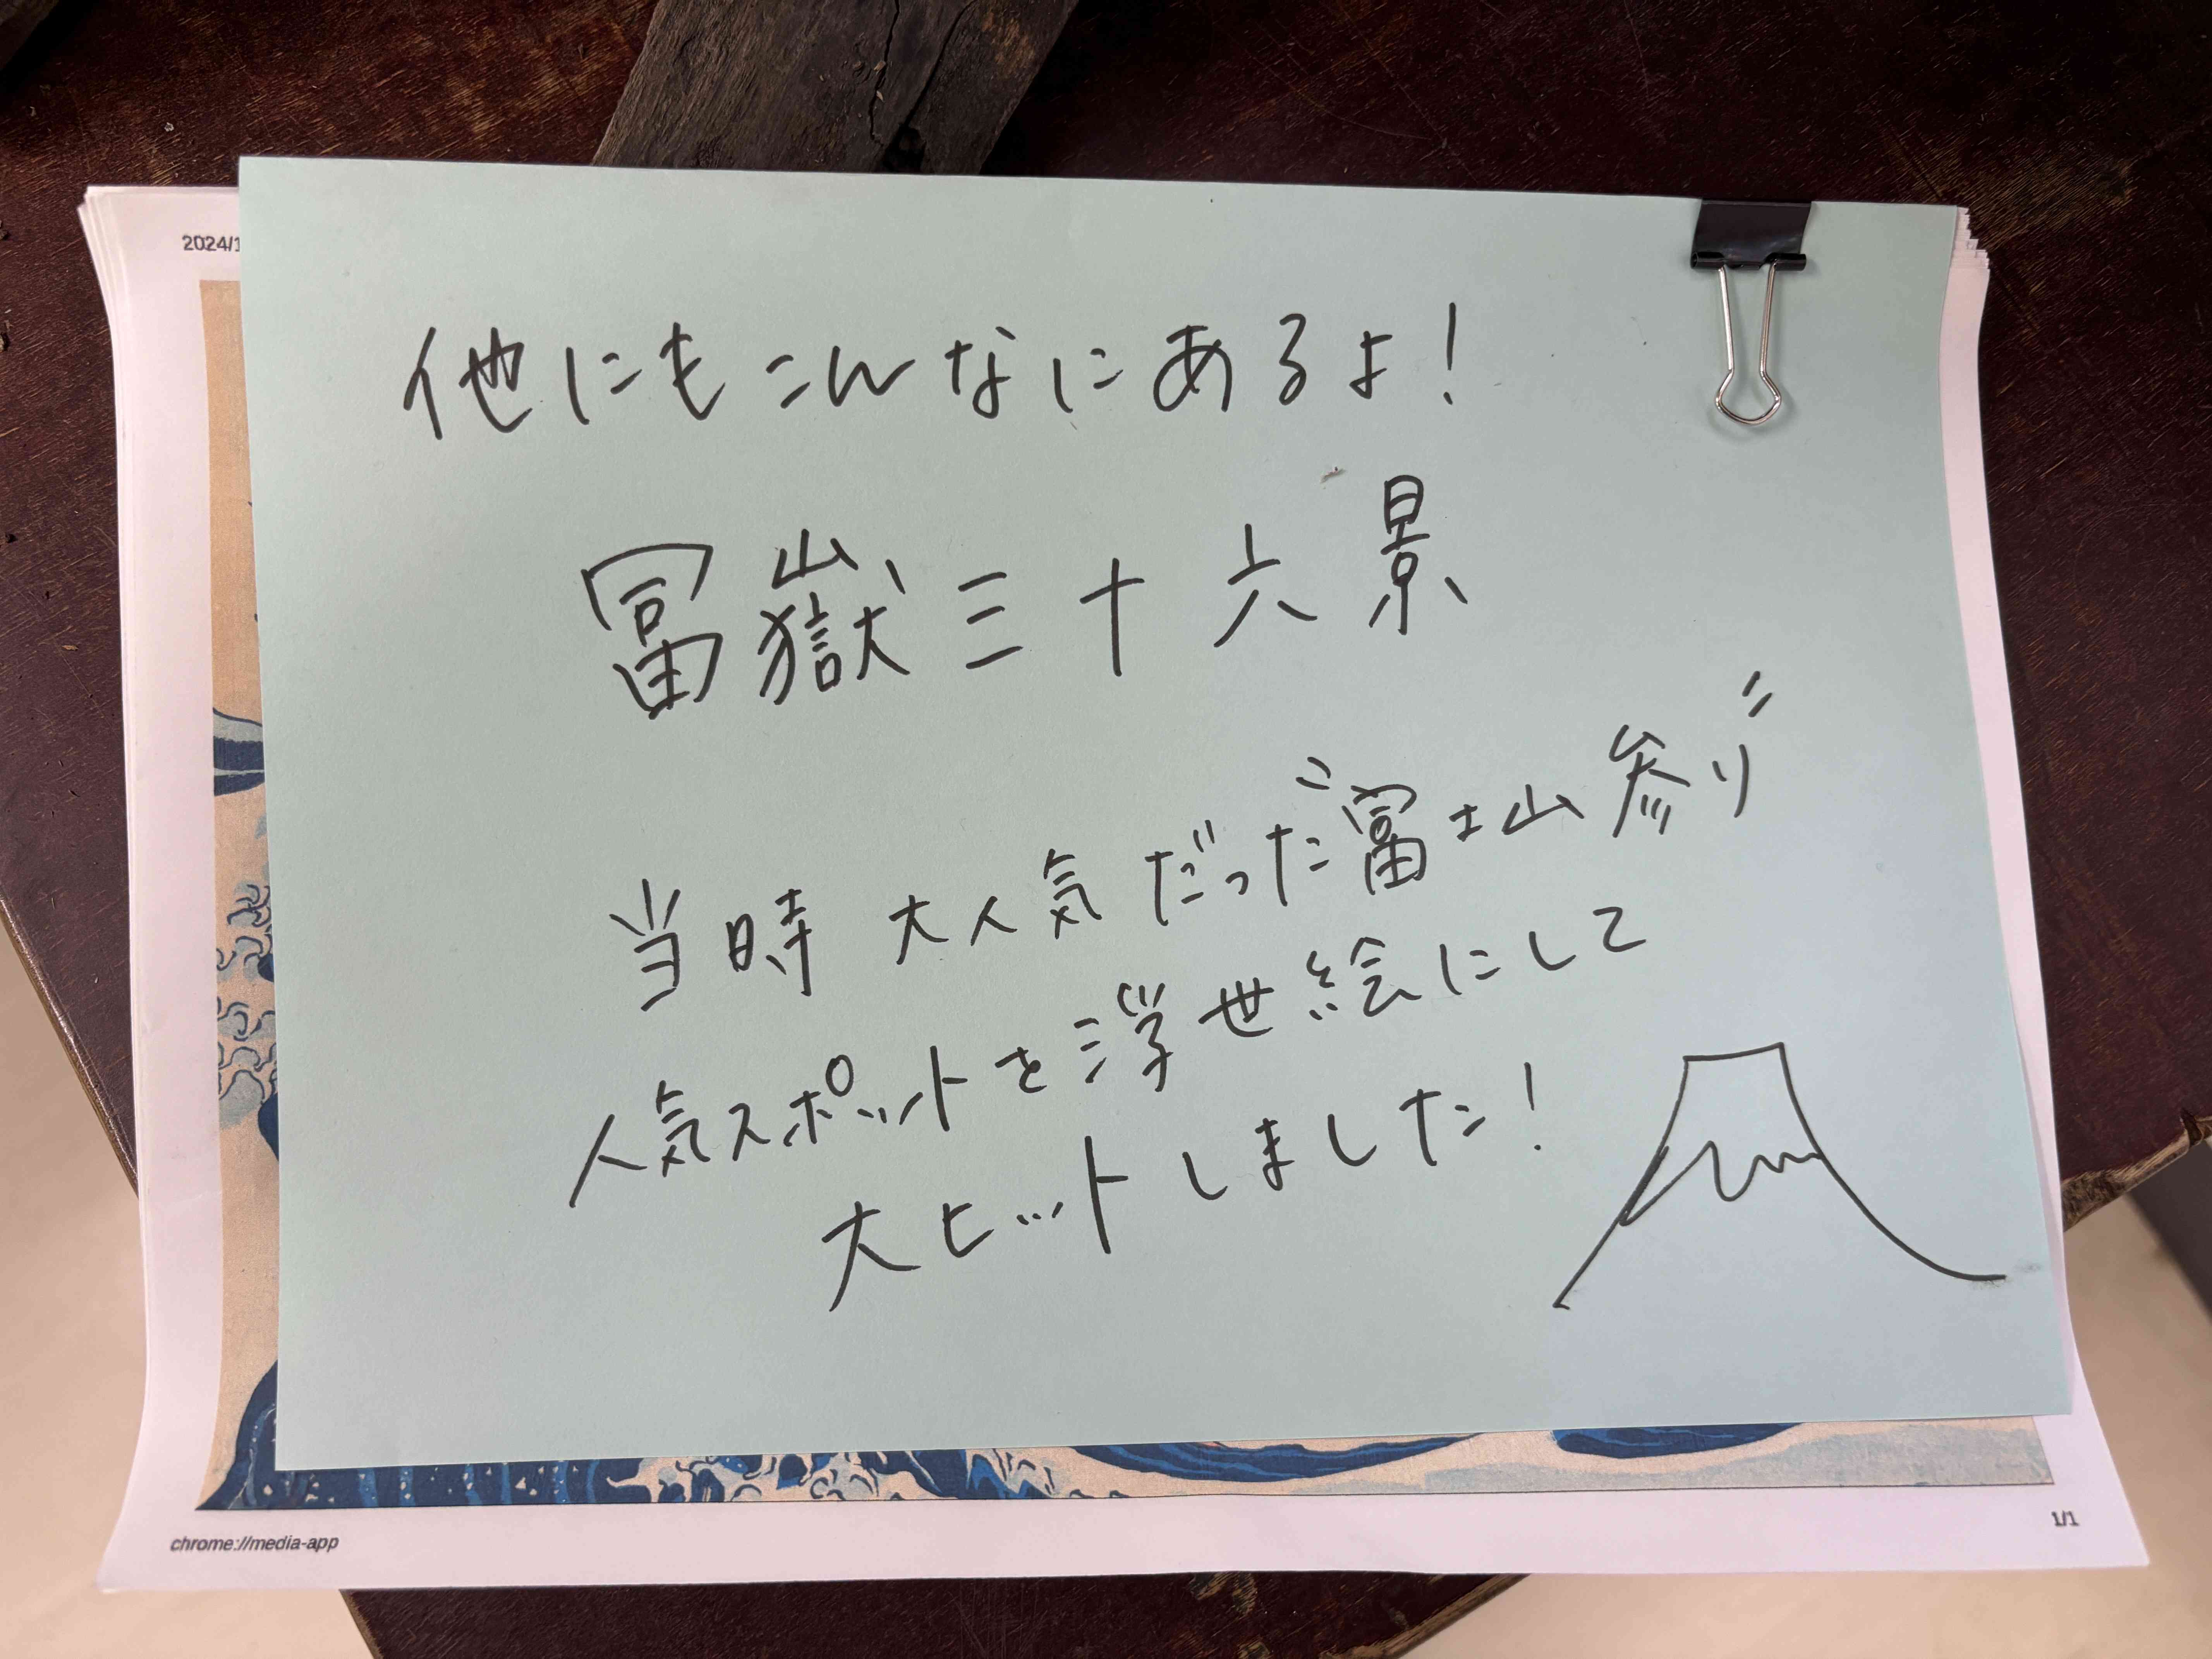 2024/1
他にもこんなにあるよ!
冨嶽三十六景
当時 大人気だった〝富士山参り〟
人気スポットを浮世絵にして
大ヒットしました!
chrome://media-app
1/1